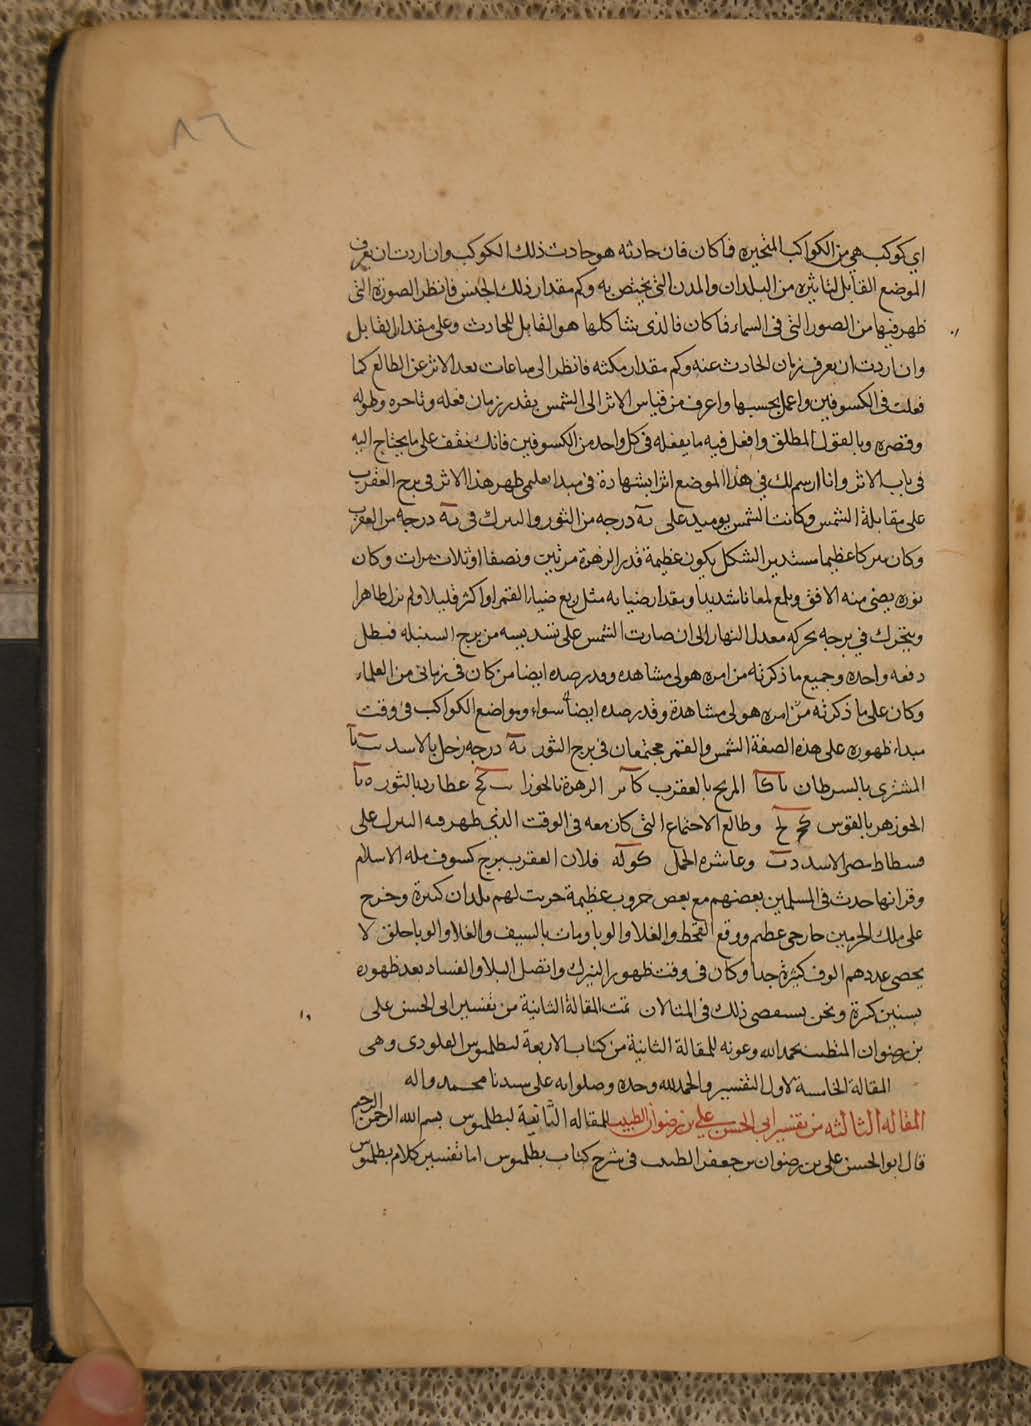 ٨٦
اي كوكب هي من الكواكب المتحيره فما كان فان حادثه هو حادث ذلك الكوكب وان اردت ان تعرف
الموضع القابل لتاثيره من البلدان والمدن التي يختص به وكم مقدار ذلك الجنس فانظر الصورة التي
ظهر فيها من الصور التي في السماء فما كان فالذي يشاكلها هو القابل للحادث وعلى مقدار القابل
وان اردت ان تعرف زمان الحادث عنه وكم مقدار مكثه فانظر الى ساعات بعد الاثر عن الطالع كما
فعلت في الكسوفين واعمل بحسبها واعرف من قياس الاثر الى الشمس بقدر زمان فعله وتاخره وطوله
وقصره وبالقول المطلق وافعل فيه ما يفعله في كل واحد من الكسوفين فانك تقف على ما يحتاج اليه
في باب الاثر وانا ارسم لك في هذا الموضع اثرا بشهادة في مبدا تعلمي ظهر هذا الاثر في برج العقرب
على مقابلة الشمس وكانت الشمس يوميد على يه درجه من الثور والنيزك في يه درجه من العقرب
وكان نيزكا عظيما مستدير الشكل يكون عظيمة قدر الزهرة مرتين ونصفا او ثلاث مرات وكان
نوره يضي منه الافق ويلمع لمعانا شديدا ومقدار ضيايه مثل ربع ضياء القمر او اكثر قليلا ولم يزل ظاهرا
ويتحرك في برجه بحركه معدل النهار الى ان صارت الشمس على تسديسه من برج السنبله فبطل
دفعه واحده وجميع ما ذكرته من امره هو لي مشاهده وقد رصده ايضا من كان في زماني من العلماء
وكان على ما ذكرته من امره هو لي مشاهدة وقد رصده ايضا سواء ومواضع الكواكب في وقت
مبداء ظهوره على هذه الصفة الشمس والقمر مجتمعان في برج الثور يه درجه زحل بالاسد
المشتري بالسرطان المريخ بالعقرب الزهرة بالجوزا عطارد بالثور
الجوزهر بالقوس وطالع الاجتماع التي كان معه في الوقت الذي ظهر فيه النيزك على
فسطاط مصر الاسد وعاشره الحمل فلان العقرب برج كسوف مله الاسلام
وقرانها حدث في المسلمين بعضهم مع بعض حروب عظيمة خربت لهم بلدان كثيرة وخرج
على ملك الحرمين خارجي عظيم ووقع القحط والغلا والوبا ومات بالسيف والغلا والوبا خلق لا
يحصى عددهم الوف كثيرة جدا وكان في وقت ظهور النيزك واتصل البلا والفساد بعد ظهوره
بسنين كثيرة ونحن نستقصي ذلك في المثالان تمت المقالة الثانية من تفسير ابي الحسن علي
بن رضوان المتطبب بحمد الله وعونه للمقالة الثانية من كتاب الاربعة لبطلميوس القلودي وهي
المقالة الخامسة لاول التفسير والحمد لله وحده وصلواته على سيدنا محمد واله
المقاله الثالثه من تفسير ابي الحسن علي بن رضوان الطبيب للمقاله الثانية لبطلميوس بسم الله الرحمن الرحيم
قال ابو الحسن علي بن رضوان بن جعفر الطبيب في شرح كتاب بطلميوس اما تفسير كلام بطلميوس